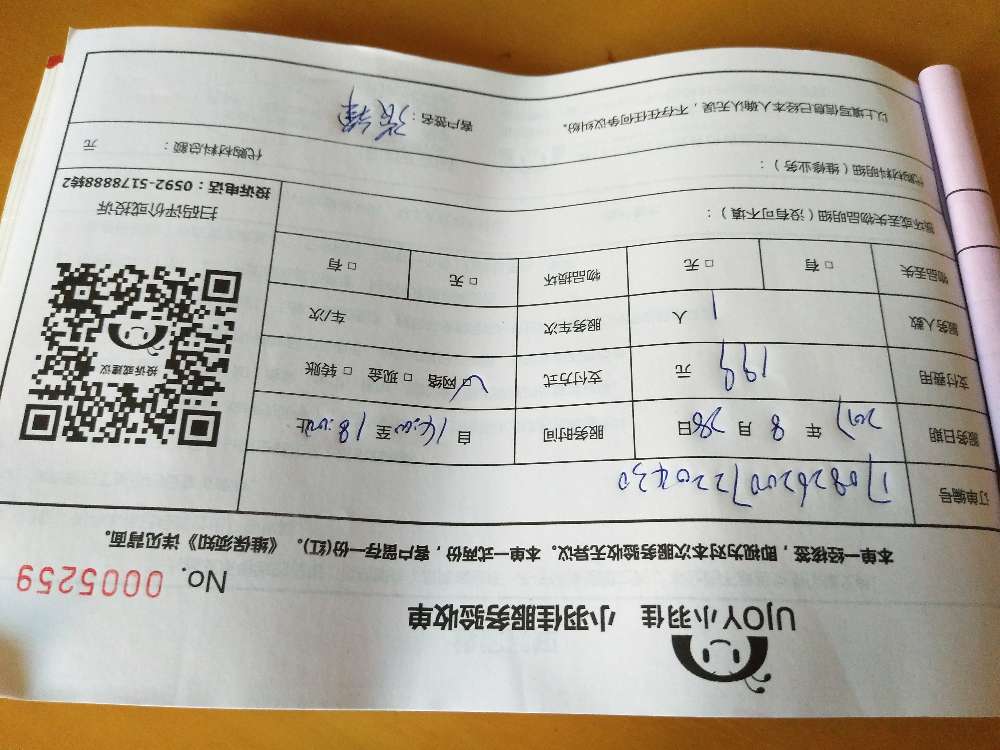 UJOY小羽佳 小羽佳服务验收单
No. 0005259
本单一经核签，即视为对本次服务验收无异议。本单一式两份，客户留存一份(红)。《维保须知》详见背面。
订单编号 1708262007220430
服务日期 2017 年 8 月 28 日 服务时间 自 14:00 至 18:00 止
支付费用 199 元 支付方式 ☑网络 □现金 □转账
服务人数 1 人 服务车次 车/次
物品丢失 □有 □无 物品损坏 □无 □有
损坏或丢失物品明细（没有可不填）：
代购材料明细（维修业务）：
代购材料总额： 元
以上填写信息已经本人确认无误，不存在任何争议纠纷。 客户签名：
投诉或建议
扫码评价或投诉
投诉电话：0592-5178888转2